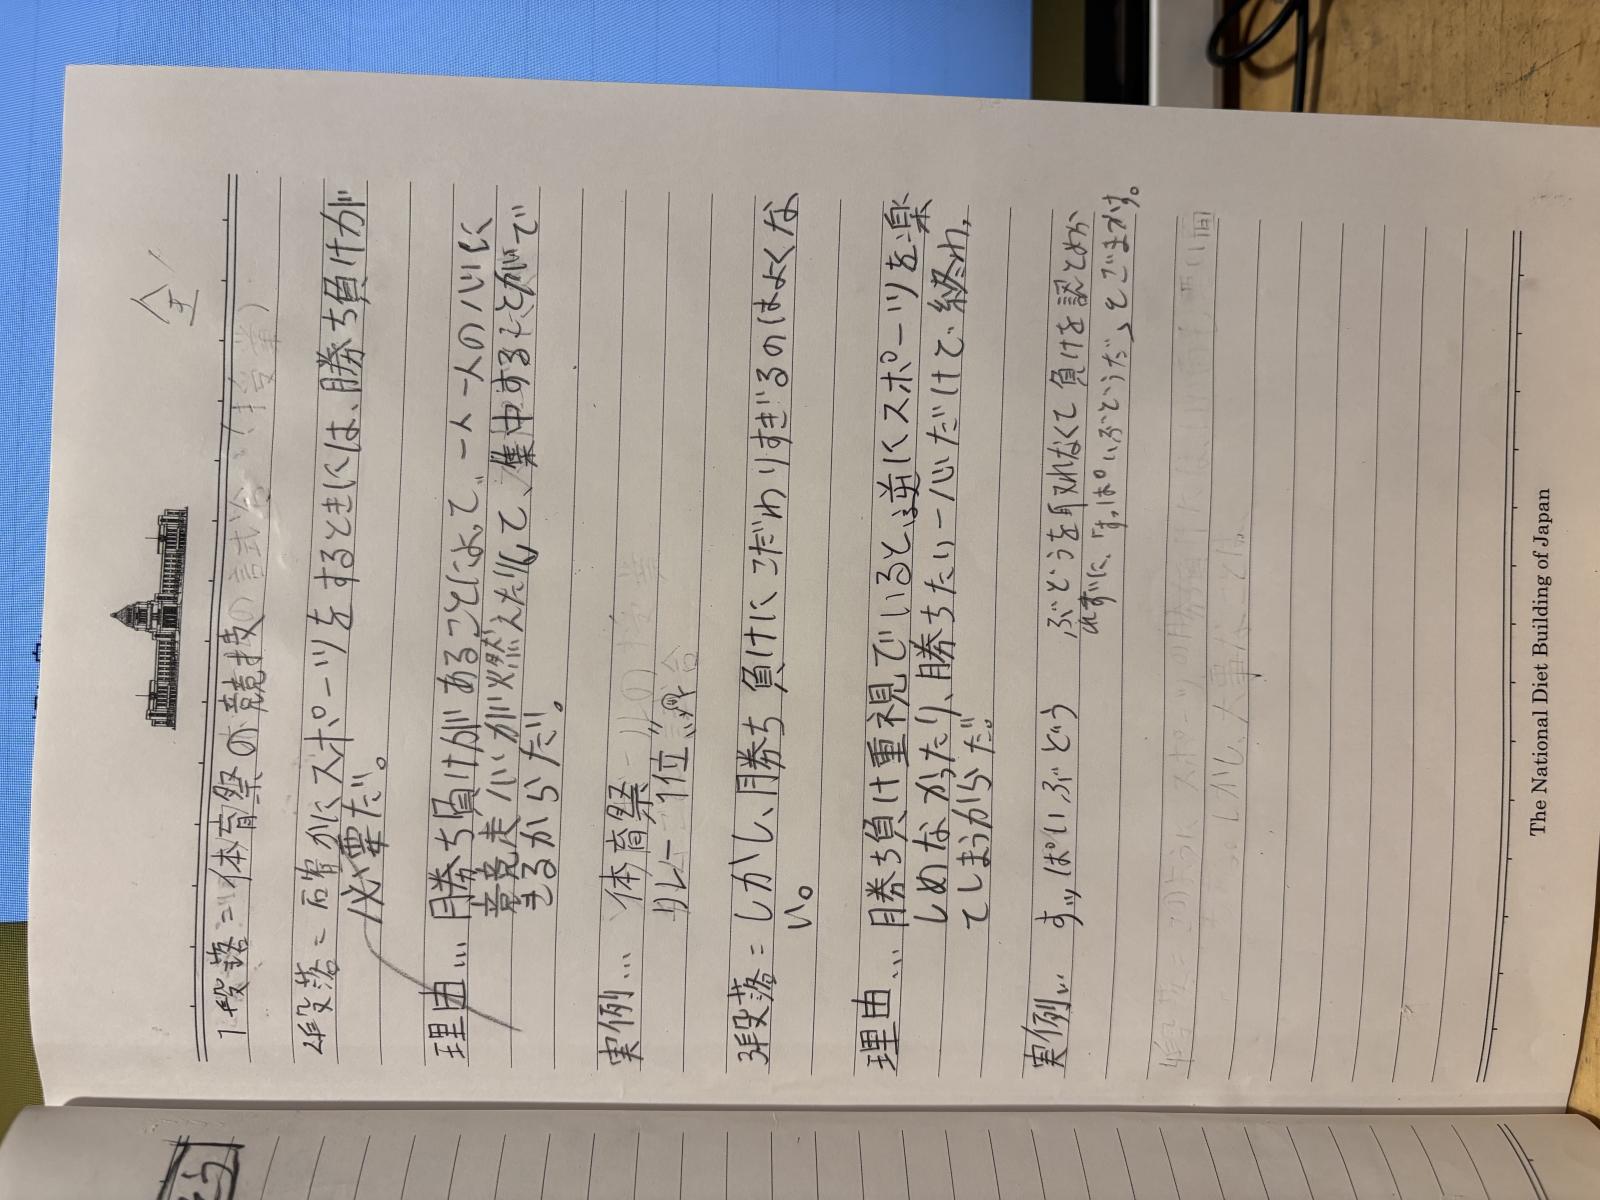 1段落＝体育祭の競技の試合(授業)
2段落＝確かにスポーツをするときには、勝ち負けが
必要だ。
理由… 勝ち負けがあることによって、一人一人の心に
競走心が燃えたりして、集中することができ
きるからだ。
実例… 体育祭
リレー1位
3段落＝しかし、勝ち負けにこだわりすぎるのはよくな
い。
理由… 勝ち負け重視でいると逆にスポーツを楽
しめなかったり、勝ちたい一心だけで終わっ
てしまうからだ。
実例… すっぱいぶどう ぶどうを取れなくて負けを認とめら
れずに、「すっぱいぶどうだ」とごまかす。
しかし、大事なことは
The National Diet Building of Japan